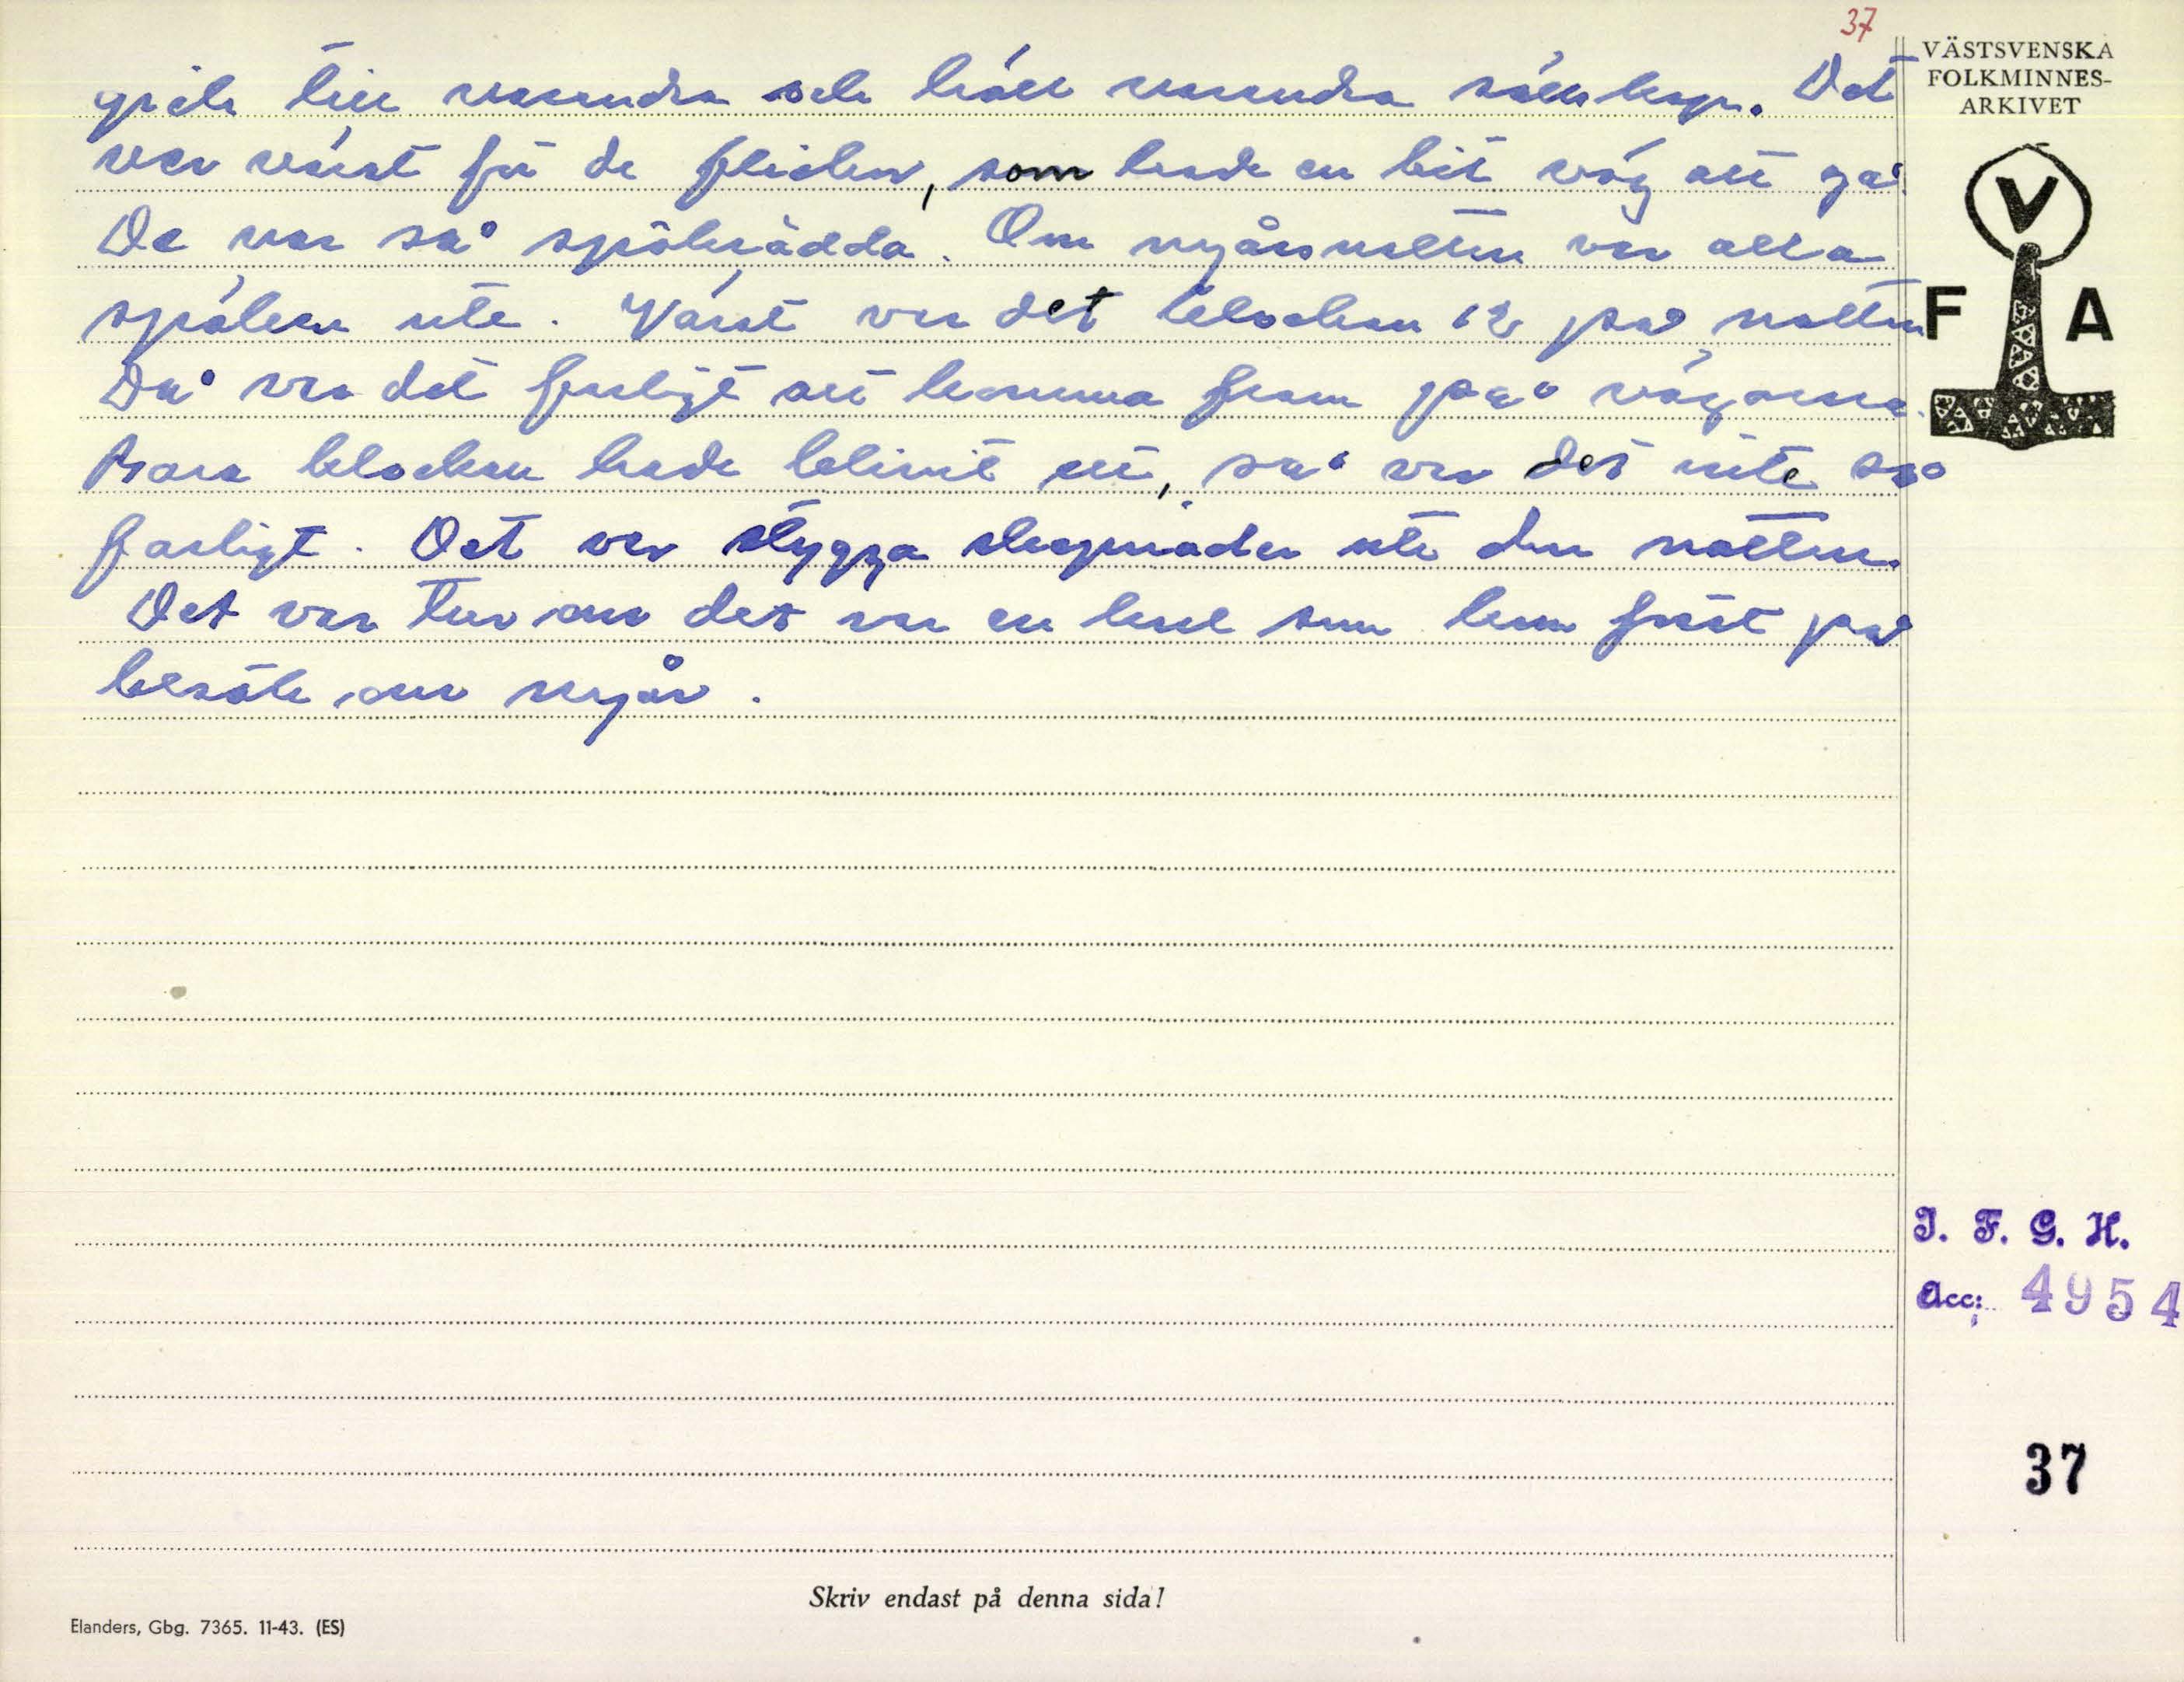 37
gick till varandra och höll varandra sällskap. Det
var värst för de flickor, som hade en bit väg att gå.
De var så spökrädda. Om nyårsnatten var alla
spöken ute. Värst var det klockan 12 på natten
Då var det farligt att komma fram på vägarna.
Bara klockan hade blivit ett, så var det inte så
farligt. Det var stygga skepnader ute den natten.
Det var tur om det var en karl som kom först på
besök om nyår.
VÄSTSVENSKA
FOLKMINNES-
ARKIVET
V
F A
I. F. G. H.
Acc: 4954
37
Skriv endast på denna sida!
Elanders, Gbg. 7365. 11-43. (ES)